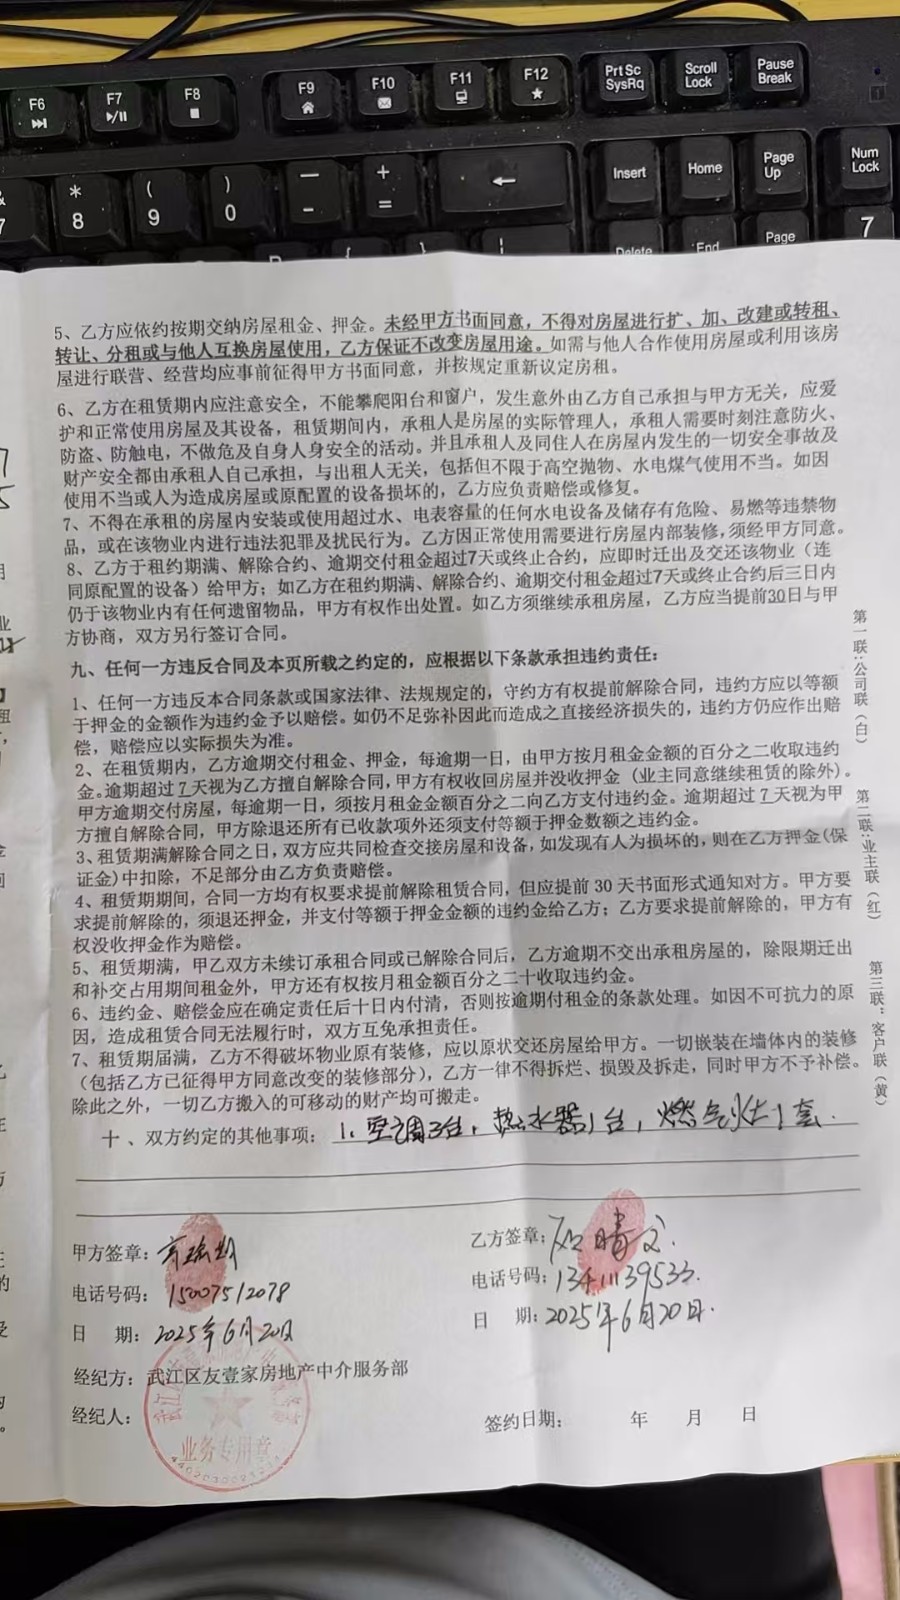 F6
F7
F8
F9
F10
F11
F12
PrtSc
SysRq
Scroll
Lock
Pause
Break
&
7
*
8
(
9
)
0
—
-
+
=
←
Insert
Home
Page
Up
Num
Lock
Delete
End
Page
7
5、乙方应依约按期交纳房屋租金、押金。未经甲方书面同意，不得对房屋进行扩、加、改建或转租、
转让、分租或与他人互换房屋使用，乙方保证不改变房屋用途。如需与他人合作使用房屋或利用该房
屋进行联营、经营均应事前征得甲方书面同意，并按规定重新议定房租。
6、乙方在租赁期内应注意安全，不能攀爬阳台和窗户，发生意外由乙方自己承担与甲方无关，应爱
护和正常使用房屋及其设备，租赁期间内，承租人是房屋的实际管理人，承租人需要时刻注意防火、
防盗、防触电，不做危及自身人身安全的活动。并且承租人及同住人在房屋内发生的一切安全事故及
财产安全都由承租人自己承担，与出租人无关，包括但不限于高空抛物、水电煤气使用不当。如因
使用不当或人为造成房屋或原配置的设备损坏的，乙方应负责赔偿或修复。
7、不得在承租的房屋内安装或使用超过水、电表容量的任何水电设备及储存有危险、易燃等违禁物
品，或在该物业内进行违法犯罪及扰民行为。乙方因正常使用需要进行房屋内部装修，须经甲方同意。
8、乙方于租约期满、解除合约、逾期交付租金超过7天或终止合约，应即时迁出及交还该物业（连
同原配置的设备）给甲方；如乙方在租约期满、解除合约、逾期交付租金超过7天或终止合约后三日内
仍于该物业内有任何遗留物品，甲方有权作出处置。如乙方须继续承租房屋，乙方应当提前30日与甲
方协商，双方另行签订合同。
九、任何一方违反合同及本页所载之约定的，应根据以下条款承担违约责任：
1、任何一方违反本合同条款或国家法律、法规规定的，守约方有权提前解除合同，违约方应以等额
于押金的金额作为违约金予以赔偿。如仍不足弥补因此而造成之直接经济损失的，违约方仍应作出赔
偿，赔偿应以实际损失为准。
2、在租赁期内，乙方逾期交付租金、押金，每逾期一日，由甲方按月租金金额的百分之二收取违约
金。逾期超过 7 天视为乙方擅自解除合同，甲方有权收回房屋并没收押金（业主同意继续租赁的除外）。
甲方逾期交付房屋，每逾期一日，须按月租金金额百分之二向乙方支付违约金。逾期超过 7 天视为甲
方擅自解除合同，甲方除退还所有已收款项外还须支付等额于押金数额之违约金。
3、租赁期满解除合同之日，双方应共同检查交接房屋和设备，如发现有人为损坏的，则在乙方押金(保
证金)中扣除，不足部分由乙方负责赔偿。
4、租赁期期间，合同一方均有权要求提前解除租赁合同，但应提前 30 天书面形式通知对方。甲方要
求提前解除的，须退还押金，并支付等额于押金金额的违约金给乙方；乙方要求提前解除的，甲方有
权没收押金作为赔偿。
5、租赁期满，甲乙双方未续订承租合同或已解除合同后，乙方逾期不交出承租房屋的，除限期迁出
和补交占用期间租金外，甲方还有权按月租金额百分之二十收取违约金。
6、违约金、赔偿金应在确定责任后十日内付清，否则按逾期付租金的条款处理。如因不可抗力的原
因，造成租赁合同无法履行时，双方互免承担责任。
7、租赁期届满，乙方不得破坏物业原有装修，应以原状交还房屋给甲方。一切嵌装在墙体内的装修
（包括乙方已征得甲方同意改变的装修部分），乙方一律不得拆烂、损毁及拆走，同时甲方不予补偿。
除此之外，一切乙方搬入的可移动的财产均可搬走。
十、双方约定的其他事项：1、空调3台，热水器1台，燃气灶1套.
第一联:公司联（白）
第二联:业主联（红）
第三联：客户联（黄）
甲方签章：
电话号码：15007512078
日 期：2025年6月20日
经纪方：武江区友壹家房地产中介服务部
经纪人：
业务专用章
乙方签章：
电话号码：13411139533.
日 期：2025年6月20日.
签约日期： 年 月 日